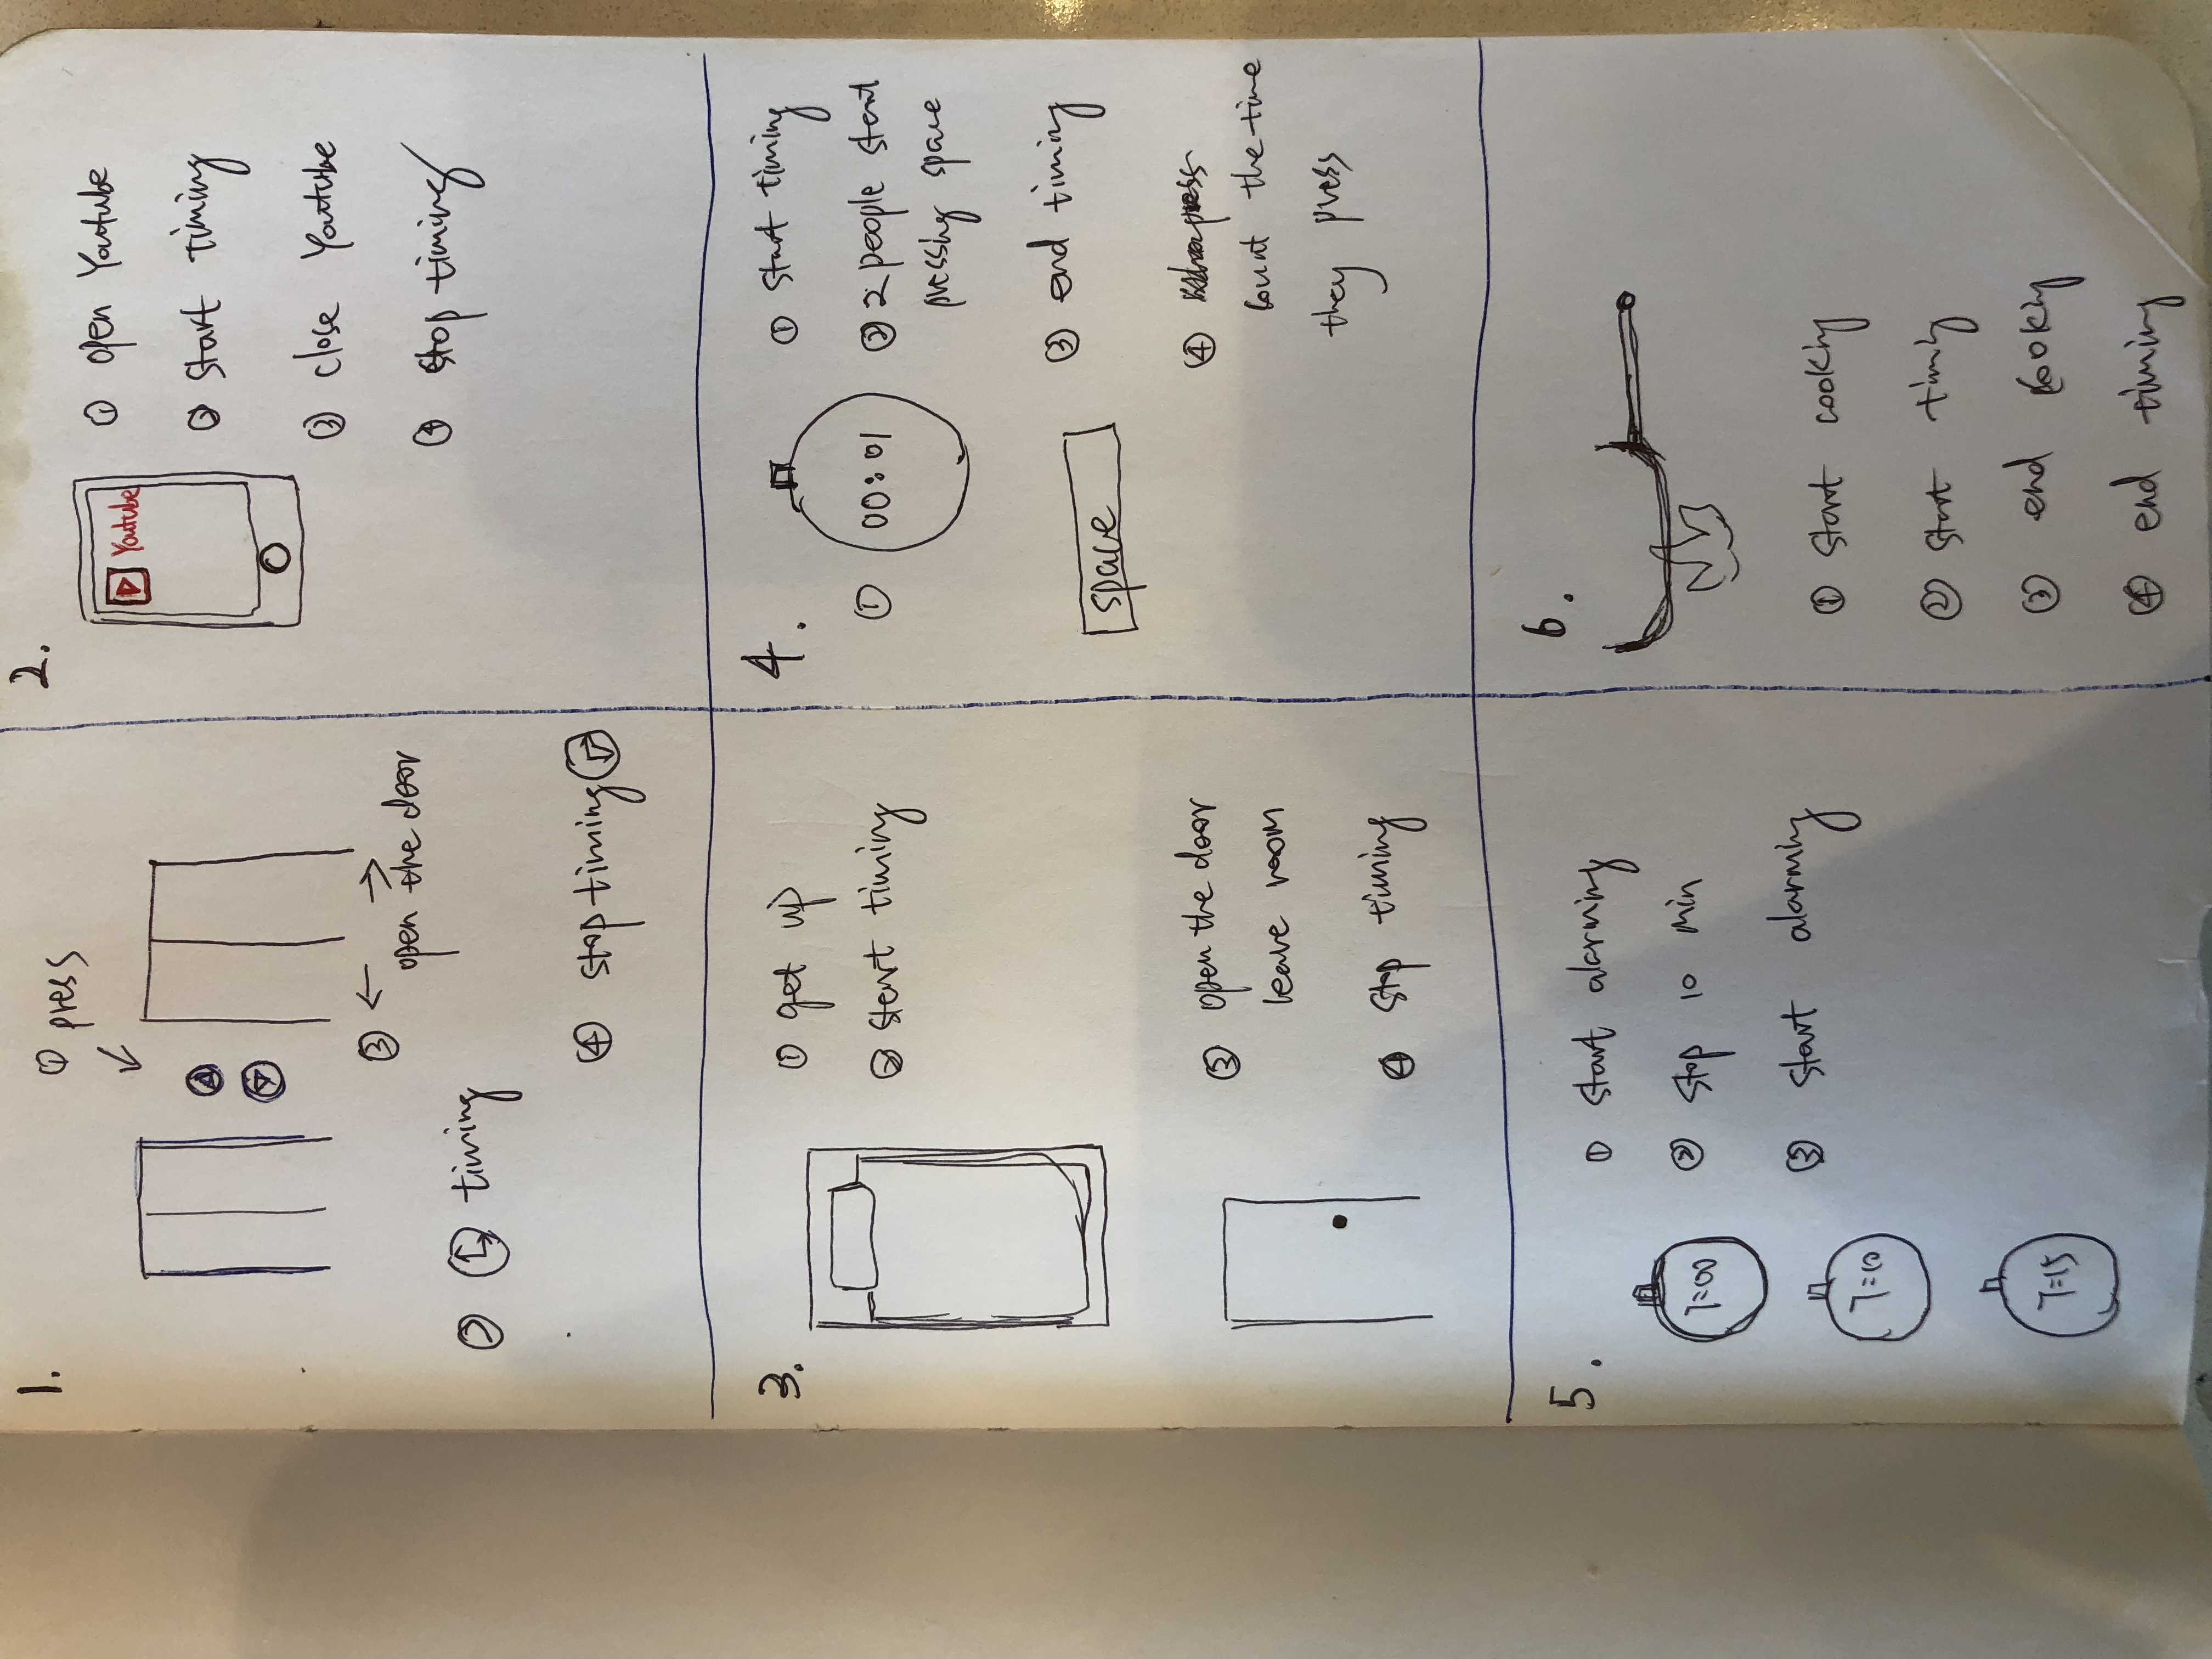 1.
① press
③ ← →
open the door
② timing
④ stop timing
2.
Youtube
① open Youtube
② start timing
③ close Youtube
④ stop timing
3.
① get up
② start timing
③ open the door
leave room
④ stop timing
4.
①
00:01
space
① start timing
② 2 people start
pressing space
③ end timing
④
count the time
they press
5.
7:00
7:10
7:15
① start alarming
② stop 10 min
③ start alarming
6.
① start cooking
② start timing
③ end cooking
④ end timing